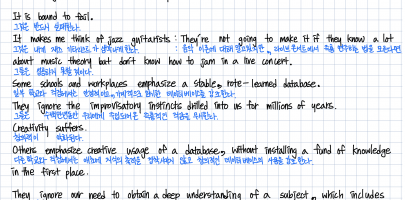 It is bound to fail.
그것은 반드시 실패한다.
It makes me think of jazz guitarists : They're not going to make it if they know a lot
그것은 내게 재즈 기타리스트가 생각나게 한다. : 음악 이론에 대해서 많이 알지만, 라이브 콘서트에서 즉흥 연주하는 법을 모른다면
about music theory but don't know how to jam in a live concert.
그들은 성공하지 못할 것이다.
Some schools and workplaces emphasize a stable, rote-learned database.
일부 학교와 직장에서는 안정적이고, 기계적으로 암기한 데이터베이스를 강조한다.
They ignore the improvisatory instincts drilled into us for millions of years.
그들은 수백만년동안 우리에게 주입되어온 즉흥적인 직감을 무시한다.
Creativity suffers.
창의력이
Others emphasize creative usage of a database, without installing a fund of knowledge
다른 학교와 직장에서는 애초에 지식의 축적을 하지 않고 창의적인 데이터베이스의 사용을 강조한다.
in the first place.
They ignore our need to obtain a deep understanding of a subject, which includes